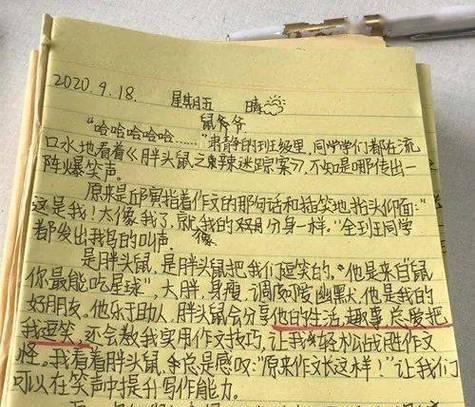 2020.9.18. 星期五 晴
鼠爷爷
“哈哈哈哈哈……”肃静的班级里,同学们都在流
口水地看着《胖头鼠之麻辣迷踪案》,不知是哪传出一
阵爆笑声。
原来是邱寅指着作文的那句话和插笑地抬头仰面:“
这是我!太像我了,就像我的双分身一样。”全班同学
都发出我的叫声。
是胖头鼠,是胖头鼠把我们逗笑的,“他是来自‘鼠
你最能吃星球”,大胖,身瘦,调皮可爱幽默,他是我的
好朋友,他乐于助人,胖头鼠会分享他的生活,趣事总是把
我逗笑,还会教我实用作文技巧,让我轻松战胜作文
怪。我看着胖头鼠,总是感叹:“原来作文长这样!”让我们
可以在笑声中提升写作能力。